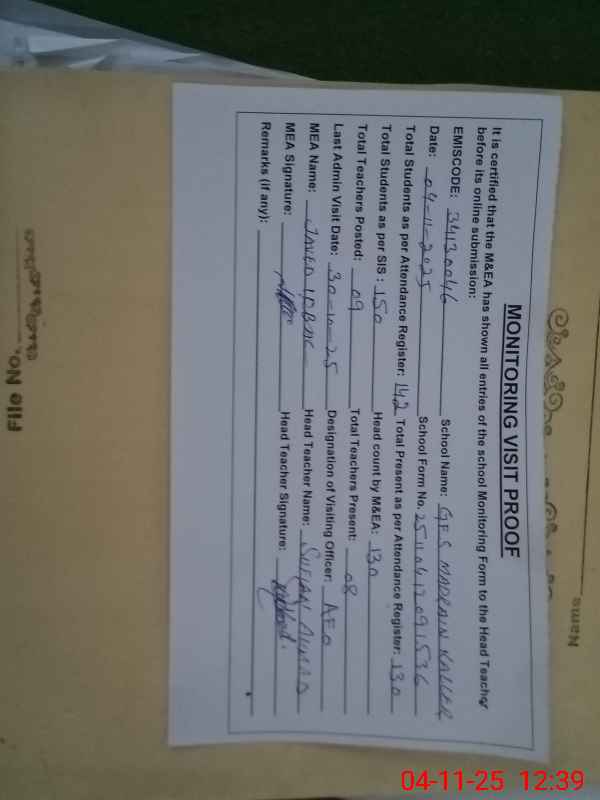 MONITORING VISIT PROOF
It is certified that the M&EA has shown all entries of the school Monitoring Form to the Head Teacher
before its online submission:
EMISCODE: 34130046 School Name: GES MADRAIN KALLER
Date: 04-11-2025 School Form No. 25110412091536
Total Students as per Attendance Register: 142 Total Present as per Attendance Register: 130
Total Students as per SIS : 150 Head count by M&EA: 130
Total Teachers Posted: 09 Total Teachers Present: 08
Last Admin Visit Date: 30-10-25 Designation of Visiting Officer: AEO
MEA Name: JAVED IQBAL Head Teacher Name: SUFIAN AHMAD
MEA Signature: Head Teacher Signature:
Remarks (if any):
Name
File No.
04-11-25 12:39